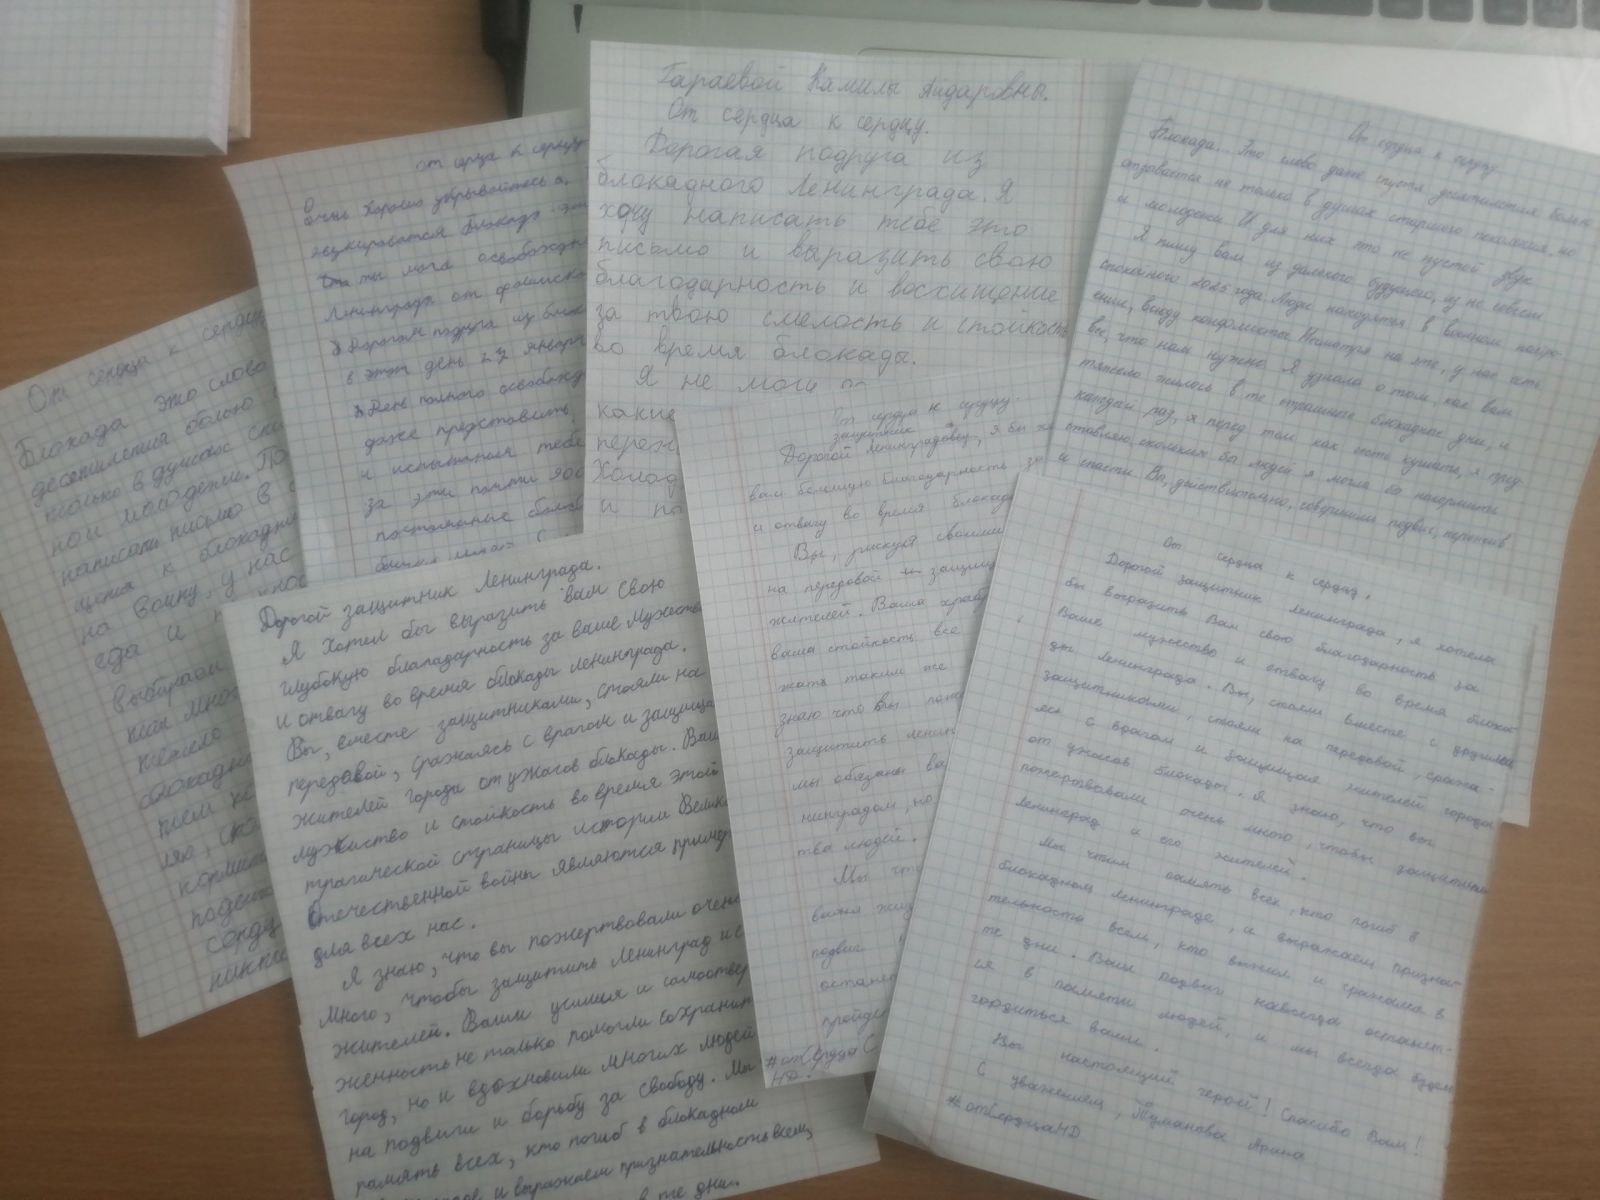 От сердца к сердцу
Блокада это слово
десятилетия болью
только в душах
но и молодежи. По
написать письмо в
щемся к блокадн
на войну, у нас
еда и
выбирали
так много
тяжело
блокадны
тем как
ляю, ско
кормить
подвиг
сердц
никто
от серца к серцу
Очень хорошо
Блокада - это
ты мога освобожден
Ленинграда от фашиско
Дорогая подруга из блок
в этот день 27 января
День полного освобожд
даже представить,
и испытания тебе
за эти почти 900
постоянные бомбё
Гараевой Камилы Айдаровны.
От сердца к сердцу.
Дорогая подруга из
блокадного Ленинграда. Я
хочу написать тебе это
письмо и выразить свою
благодарность и восхищение
за твою смелость и стойкость
во время блокады.
Я не могу
какие
переж
Холод
и по
От сердца к сердцу
Блокада. Это слово даже спустя десятилетия болью
отзывается не только в душах старшего поколения, но
и молодежи. И для них это не пустой звук
Я пишу вам из далекого будущего, из не совсем
спокойного 2025 года. Люди находятся в военном напря-
жение, всюду конфликты. Несмотря на это, у нас есть
все, что нам нужно. Я узнала о том, как вам
тяжело жилось в те страшные блокадные дни, и
каждый раз, я перед тем как сесть кушать, я пред-
ставляю, скольких бы людей я могла бы накормить
и спасти. Вы, действительно, совершили подвиг, терпение
От сердца к сердцу.
защитник
Дорогой ленинградовец, я бы хо
вам большую благодарность за
и отвагу во время блокад
Вы, рискуя своими
на передовой защищ
жителей. Ваша храбр
ваша стойкость все
жать таким же
знаю что вы пож
защитить ленин
мы обязаны ва
нинградом, но
тва людей.
Мы чт
важая жиз
подвиг
останет
пройде
#отСердцаС
НД.
Дорогой защитник Ленинграда.
Я хотел бы выразить вам свою
глубокую благодарность за ваше мужество
и отвагу во время блокады Ленинграда.
Вы, вместе защитниками, стояли на
передовой, сражаясь с врагом и защища
жителей города от ужасов блокады. Ваш
мужиство и стойкость во время этой
трагической страницы истории Велико
Отечественной войны являются пример
для всех нас.
Я знаю, что вы пожертвовали очень
много, чтобы защитить Ленинград и е
жителей. Ваши усилия и самоотвер
женность не только помогли сохранит
город, но и вдохновили многих людей
на подвиги и борьбу за свободу. Мы
память всех, кто погиб в блокадном
и выражаем признательность всем,
в те дни.
От сердца к сердцу.
Дорогой защитник Ленинграда, я хотела
бы выразить Вам свою благодарность за
Ваше мужество и отвагу во время блока-
ды Ленинграда. Вы, стояли вместе с другими
защитниками, стояли на передовой, сража-
ясь с врагом и защищая жителей города
от ужасов блокады. Я знаю, что вы
пожертвовали очень много, чтобы защитить
Ленинград и его жителей.
Мы чтим память всех, кто погиб в
блокадном Ленинграде, и выражаем признат
тельность всем, кто выжил и сражался в
те дни. Ваш подвиг навсегда останет-
ся в памяти людей, и мы всегда будем
гордиться вами.
Вы настоящий герой! Спасибо Вам!
С уважением, Туманова Арина
#отСердцаНД